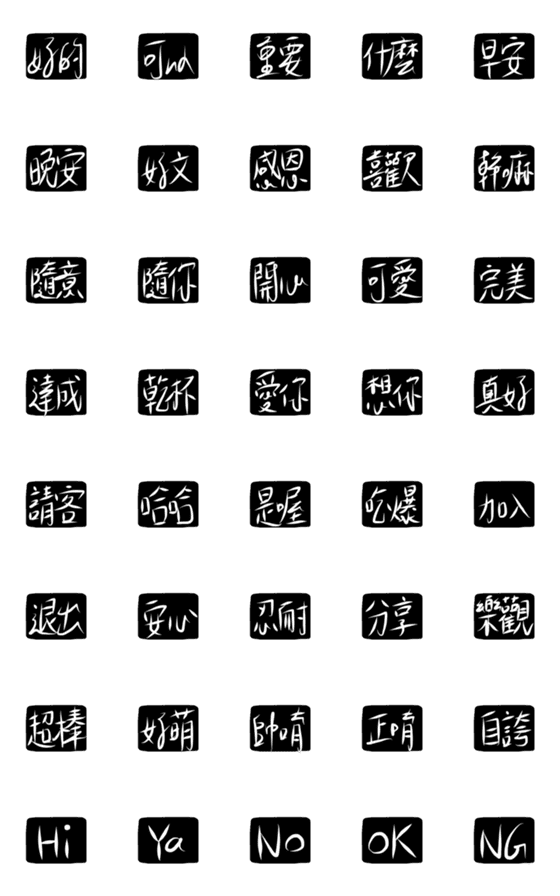 好的 可以 重要 什麼 早安
晚安 好文 感恩 喜歡 幹嘛
隨意 隨你 開心 可愛 完美
達成 乾杯 愛你 想你 真好
請客 哈哈 是喔 吃爆 加入
退出 安心 忍耐 分享 樂觀
超棒 好萌 帥唷 正唷 自誇
Hi Ya No OK NG